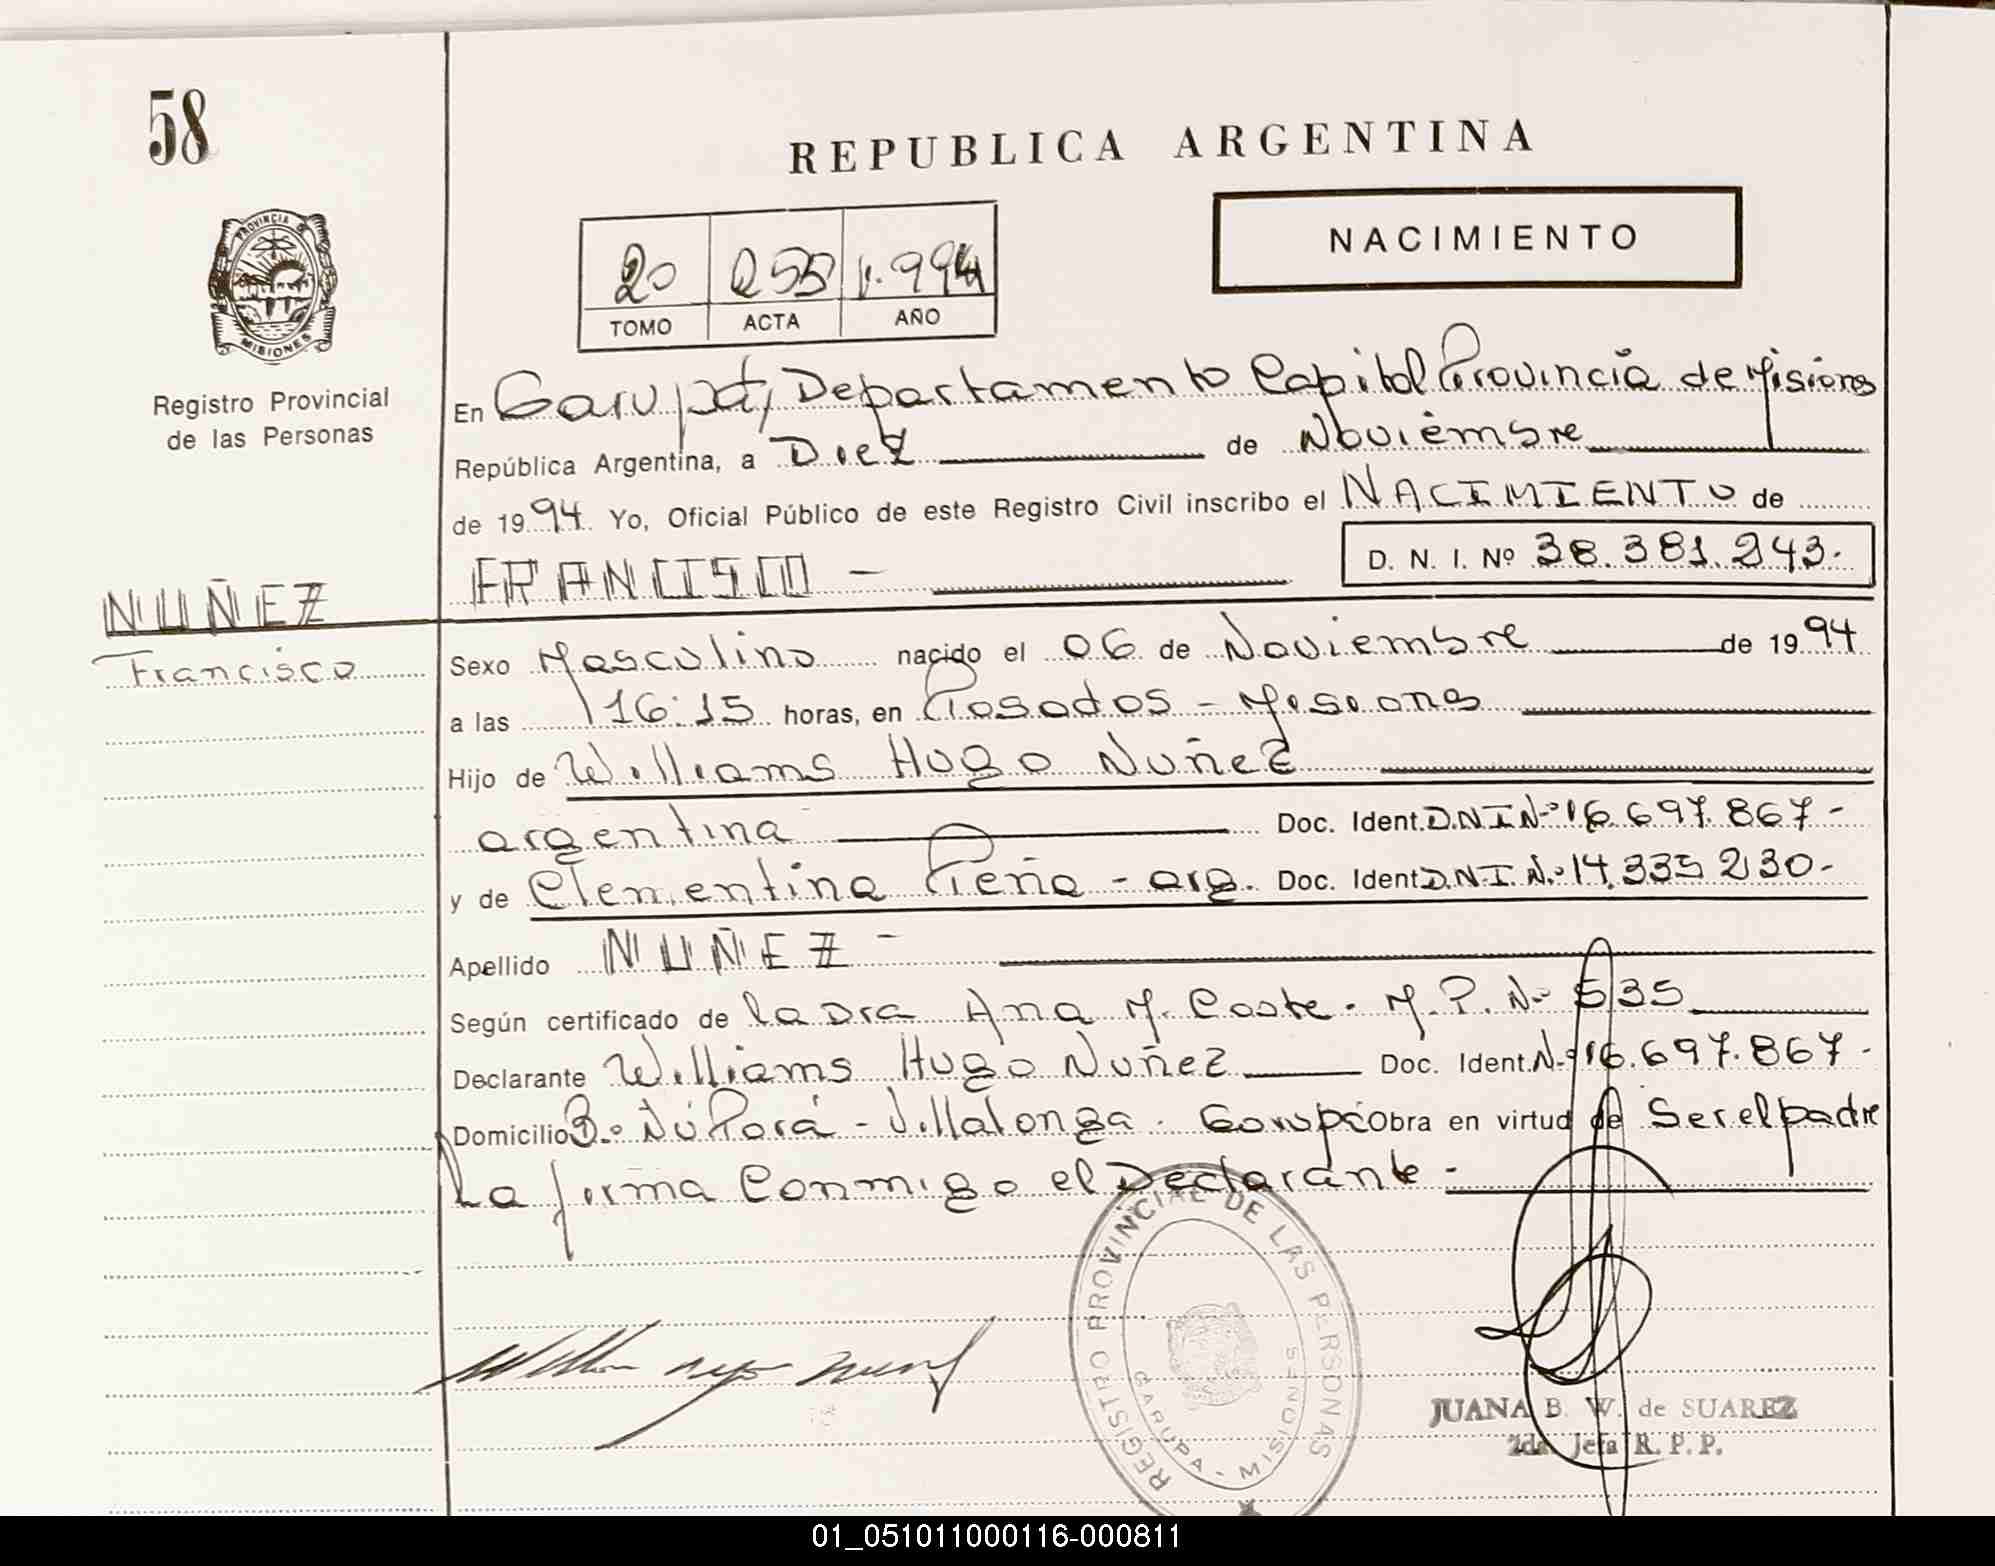 58
REPUBLICA ARGENTINA
NACIMIENTO
20 255 1.994
TOMO ACTA AÑO
PROVINCIA DE MISIONES
Registro Provincial
de las Personas
En Garupá, Departamento Capital Provincia de Misiones
República Argentina, a Diez de Noviembre
de 1994 Yo, Oficial Público de este Registro Civil inscribo el NACIMIENTO de
NUÑEZ FRANCISCO - D. N. I. Nº 38.381.243.
Francisco Sexo Masculino nacido el 06 de Noviembre de 1994
a las 16:15 horas, en Posadas - Misiones
Hijo de Williams Hugo Nuñez
argentina Doc. Ident. D.N.I Nº 16.697.867-
y de Clementina Peña - arg. Doc. Ident D.N.I. Nº 14.335230-
Apellido NUÑEZ -
Según certificado de la Dra Ana M. Coste. M.P. Nº 535
Declarante Williams Hugo Nuñez Doc. Ident. Nº 16.697.867-
Domicilio Bº Ñú Porá - Villalonga. Garupá Obra en virtud de Ser el padre
La firma Conmigo el Declarante.
REGISTRO PROVINCIAL DE LAS PERSONAS
GARUPA - MISIONES
JUANA B. W. de SUAREZ
2da. Jefa R. P. P.
01_051011000116-000811